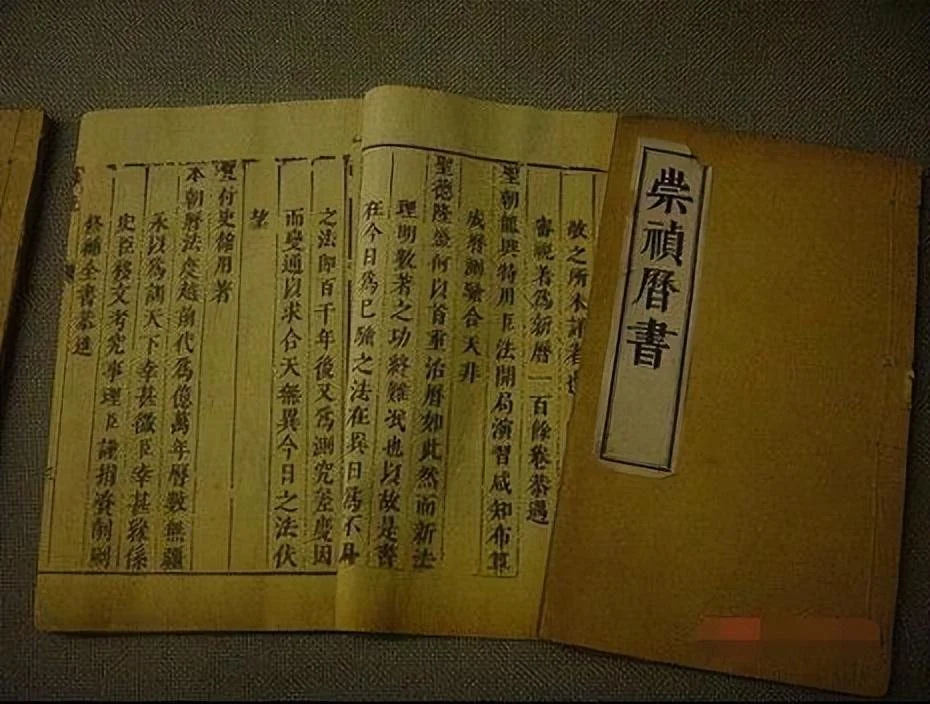 崇禎曆書
敬之所未詳者也
審視著為新曆一百餘卷恭遇
聖朝龍興特用臣法開局演習咸知布算
成曆測驗合天非
聖德隆盛何以首重治曆如此然而新法
理明數著之功終難泯也以故是書
在今日為已驗之法在異日為不
之法即百千年後又為測究差度因
而變通以求合天無異今日之法伏
望
付史館用著
本朝曆法度越前代為億萬年曆數無疆
永以為訓天下幸甚微臣幸甚緣係
史臣移文考究事理臣謹捐資制刷
修補全書恭進